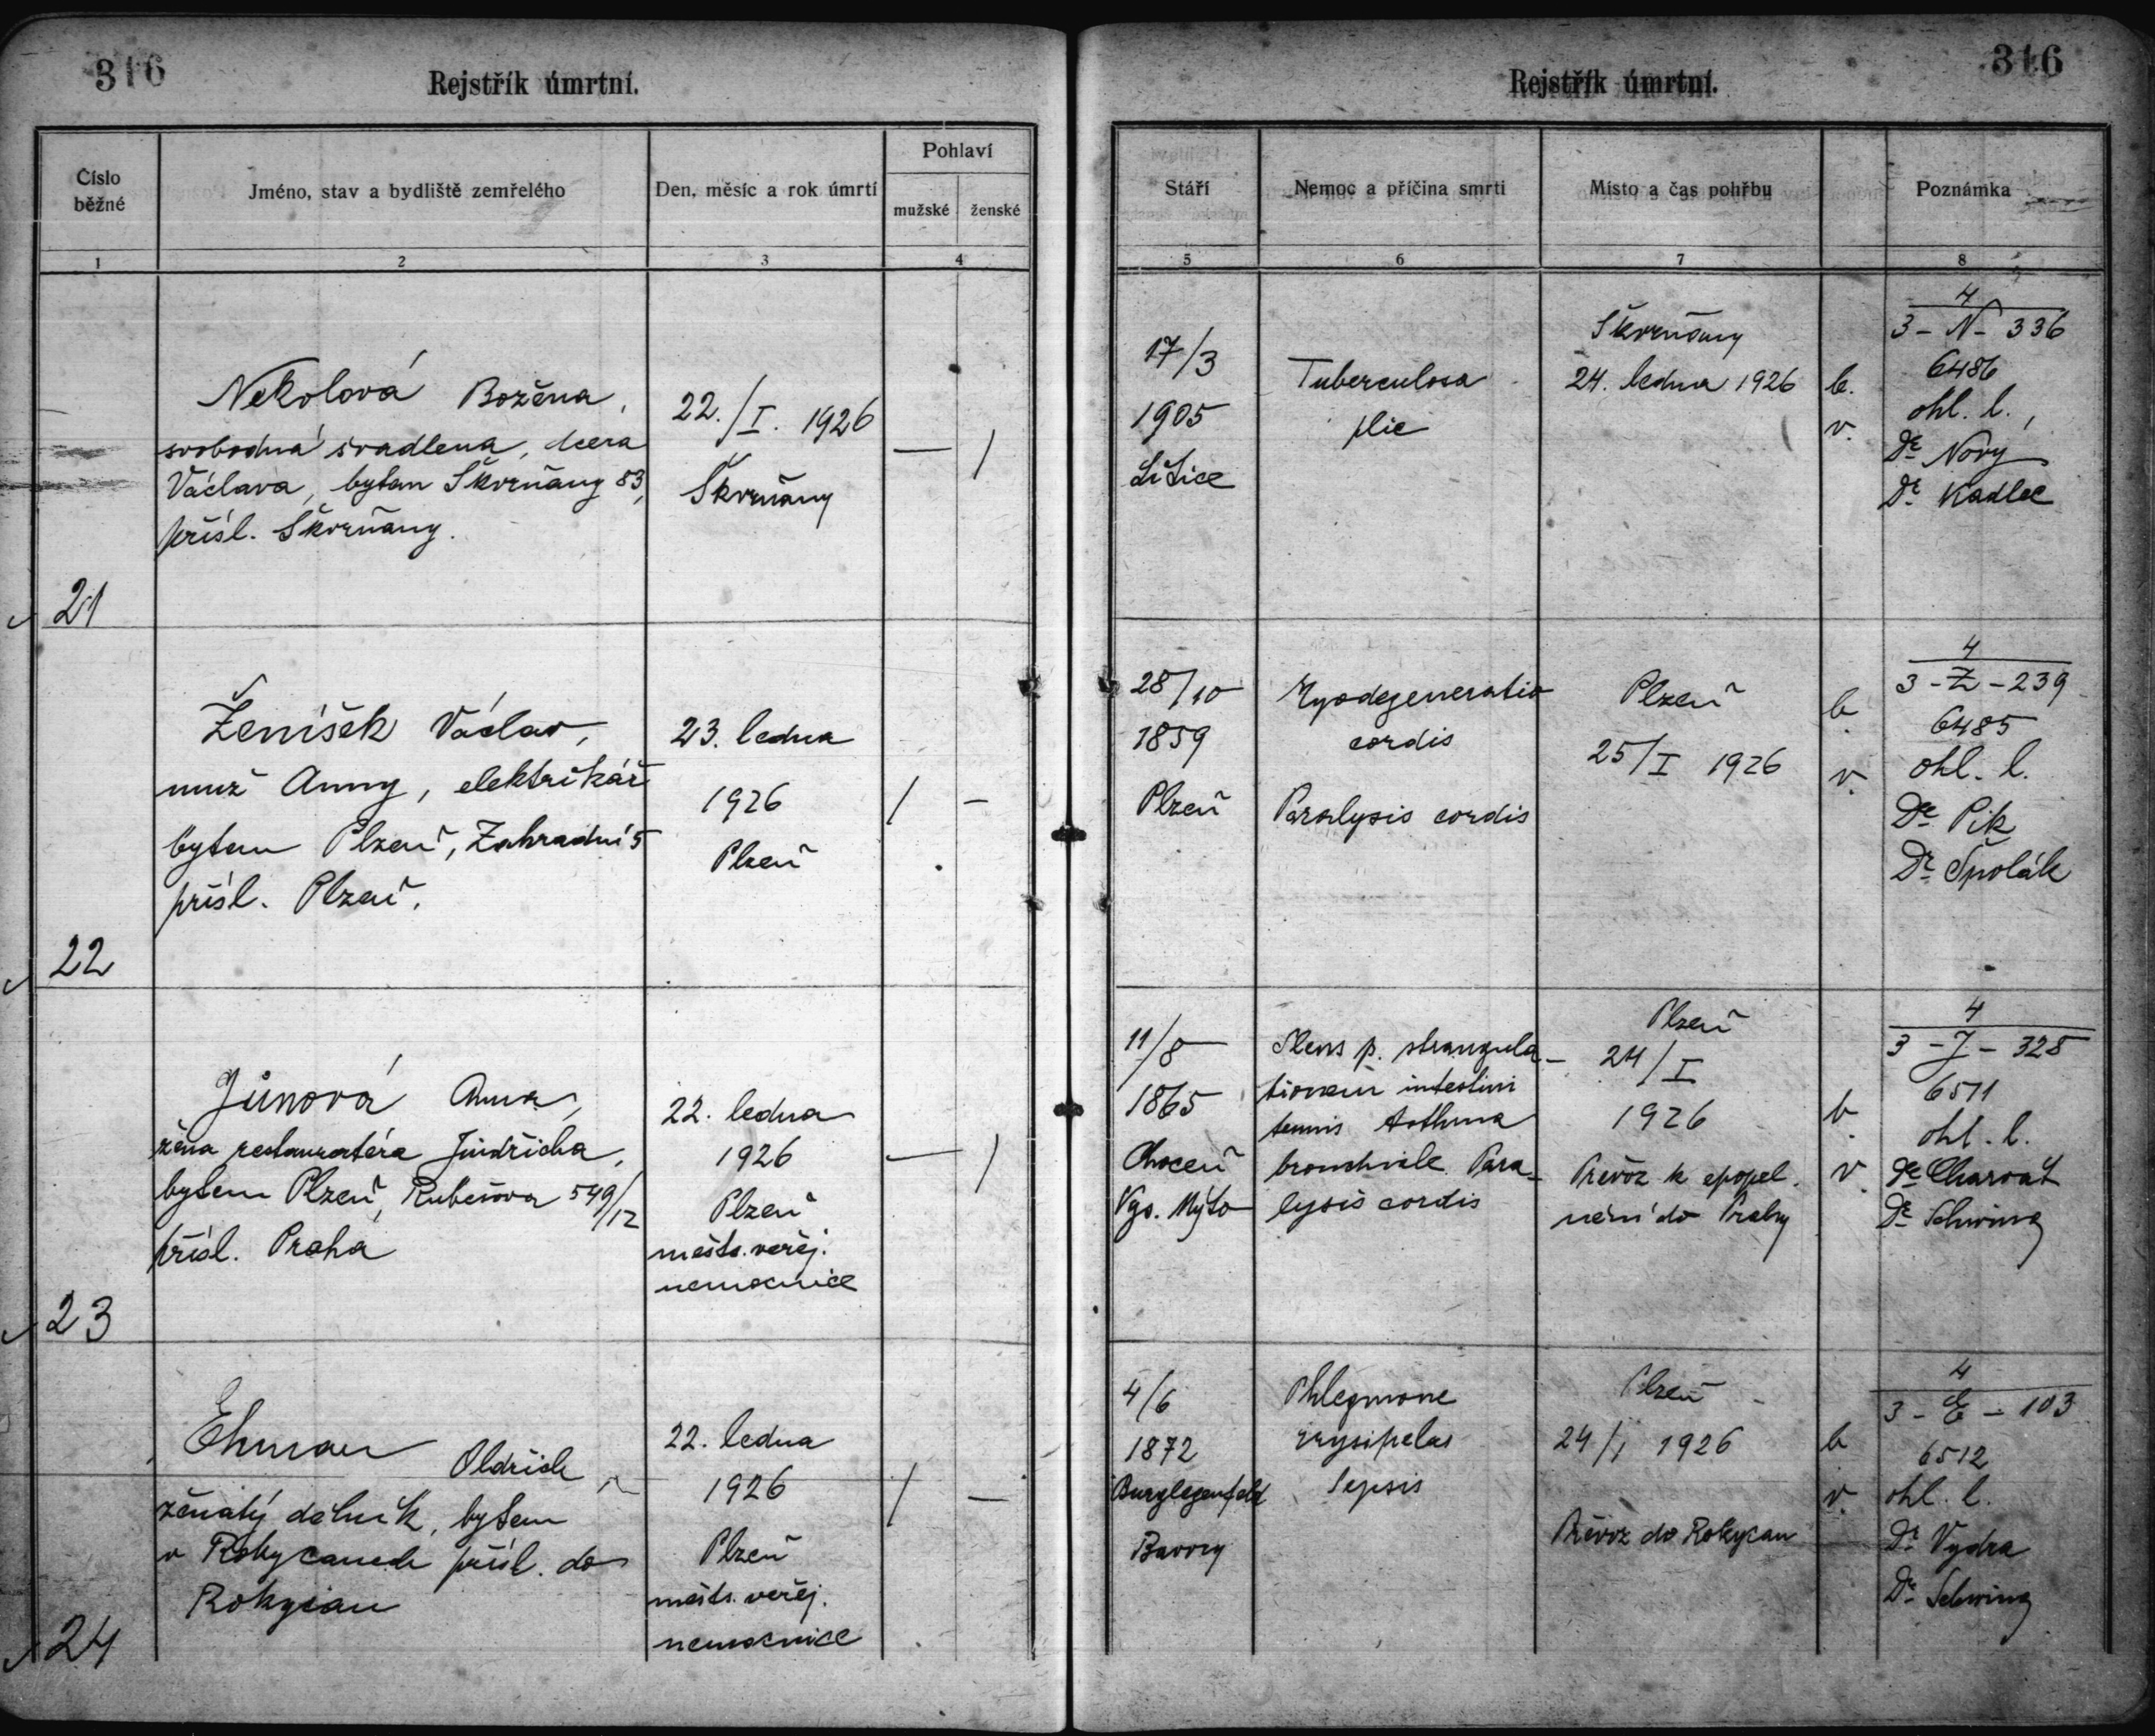 316
Rejstřík úmrtní.
Číslo běžné
Jméno, stav a bydliště zemřelého
Den, měsíc a rok úmrtí
Pohlaví
mužské
ženské
1
2
3
4
Nekolová Božena,
svobodná švadlena, dcera
Václava, bytem Škvrňany 83,
přísl. Škvrňany.
22./I. 1926
Škvrňany
— /
21
Ženíšek Václav,
muž Anny, elektrikář
bytem Plzeň, Zahradní 5
přísl. Plzeň.
23. ledna
1926
Plzeň
/ —
22
Jůnová Anna,
žena restauratéra Jindřicha,
bytem Plzeň, Rubešova 549/12
přísl. Praha
22. ledna
1926
Plzeň
měšts. veřej.
nemocnice
— /
23
Ehman Oldřich,
ženatý dělník, bytem
v Rokycanech přísl. do
Rokycan
22. ledna
1926
Plzeň
měšts. veřej.
nemocnice
/ —
24
316
Rejstřík úmrtní.
Stáří
Nemoc a příčina smrti
Místo a čas pohřbu
Poznámka
5
6
7
8
17/3
1905
Litice
Tuberculosa
plic
Škvrňany
24. ledna 1926
b.
v.
4
3 - N - 336
6486
ohl. l.
Dr Nový
Dr Kadlec
28/10
1859
Plzeň
Myodegeneratio
cordis
Paralysis cordis
Plzeň
25/I 1926
b.
v.
4
3 - Z - 239
6485
ohl. l.
Dr Pik
Dr Špolák
11/8
1865
Choceň
Vys. Mýto
Ileus p. strangula-
tionem intestini
tenuis Asthma
bronchiale. Para-
lysis cordis
Plzeň
24/I
1926
Převoz k zpopel-
nění do Prahy
b.
v.
4
3 - J - 328
6511
ohl. l.
Dr Charvát
Dr Schwing
4/6
1872
Burglegenfeld
Bavory
Phlegmone
erysipelas
Sepsis
Plzeň
24/I 1926
Převoz do Rokycan
b.
v.
4
3 - E - 103
6512
ohl. l.
Dr Vydra
Dr Schwing